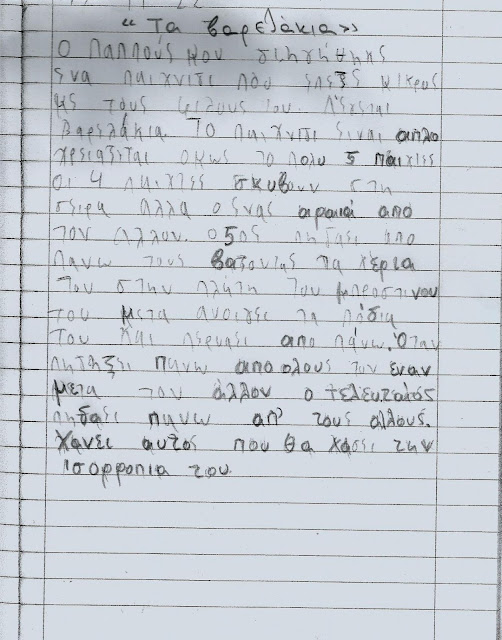 « Τα βαρελάκια»
Ο παππούς μου διηγήθηκε
ενα παιχνιτι που επεξε μικρος
με τους φιλους του. Λεγεται
Βαρελάκια. Το παιχνιτι ειναι απλο
χρειαζεται ομως το πολυ 5 παιχτες
οι 4 παιχτες σκυβουν στη
σειρα αλλα ο ενας αραιά από
τον αλλον. ο 5ος πηδαει απο
πανω τους βαζοντας τα χέρια
του στην πλατη του μπροστινου
του μετα ανοιγει τα πόδια
του και περναει απο πάνω. Όταν
πητηξει πανω απο ολους τον εναν
μετα τον άλλον ο τελευταίος
πηδαει πανω απ' τους αλλους.
Χάνει αυτος που θα χασει την
ισορροπια του.